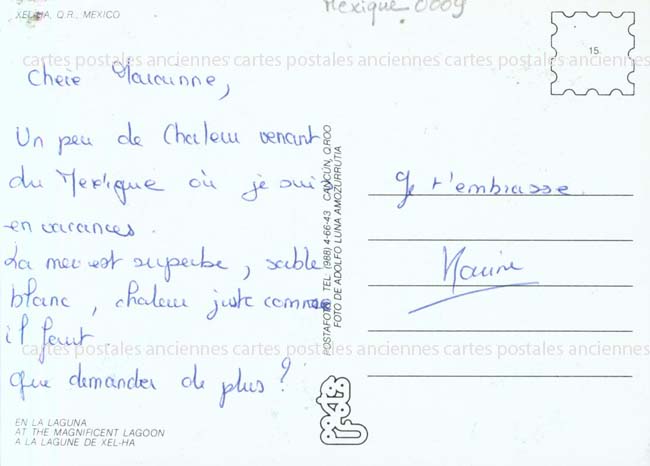 XEL-HA, Q.R., MEXICO
Mexique 0009
15.
cartes postales anciennes cartes postales anciennes cartes postales anciennes
Chère Marianne,
Un peu de Chaleur venant
du Mexique où je suis
en vacances.
La mer est superbe, sable
blanc, chaleur juste comme
il faut.
Que demander de plus ?
Je t'embrasse
cartes postales anciennes cartes postales anciennes cartes postales anciennes
POSTAFOTO TEL. (988) 4-66-43 CANCÚN, Q.ROO
FOTO DE ADOLFO LUNA AMOZURRUTIA
EN LA LAGUNA
AT THE MAGNIFICENT LAGOON
A LA LAGUNE DE XEL-HA